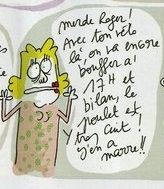 merde Roger !
Avec ton vélo
là, on va encore
bouffer à
17 H et
bilan, le
poulet est
trop cuit !
y'en a
marre !!